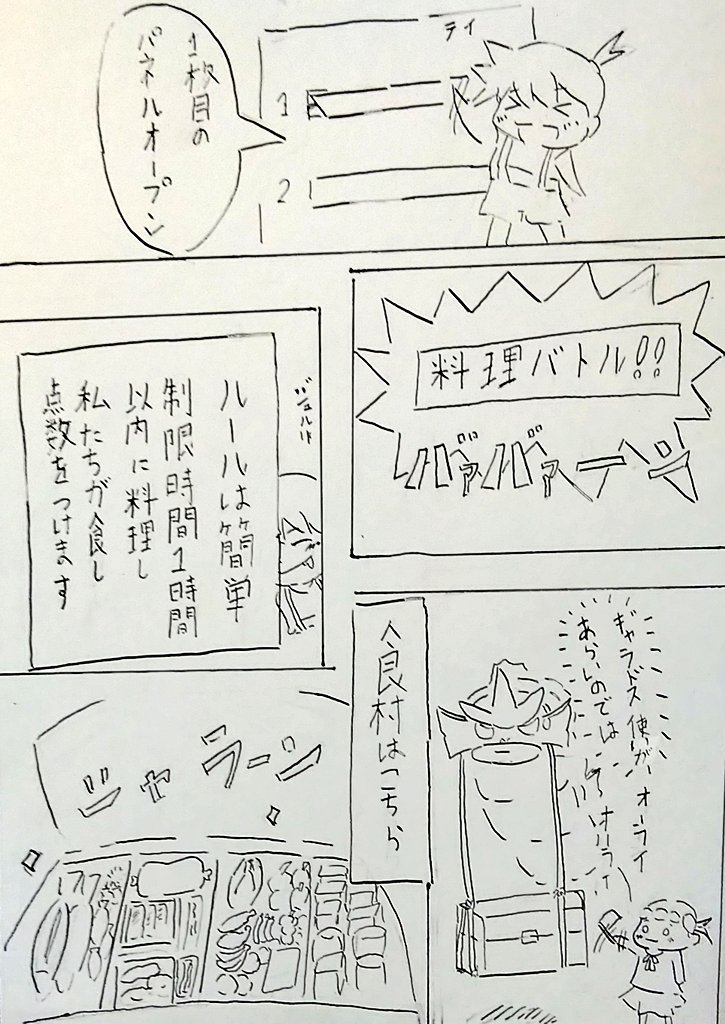 テイ
1枚目の
パネルオープン
1
2
料理バトル!!
バァバァーン
ジュルリ
ルールは簡単
制限時間1時間
以内に料理し
私たちが食し
点数をつけます
食材はこちら
ギャラドス使いが
オーライ
オーライ
ジャラーン